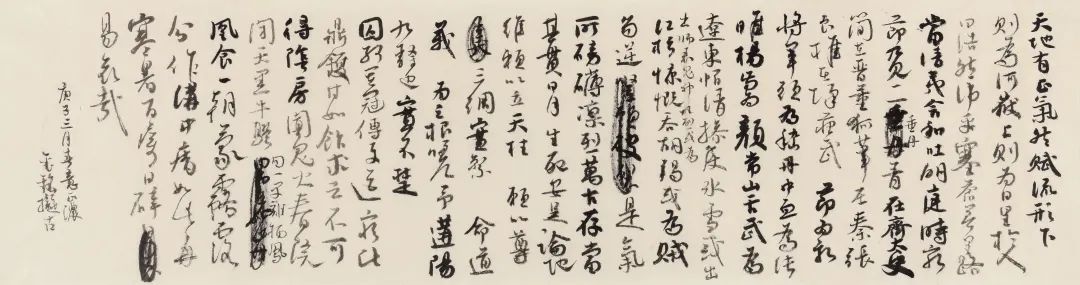 天地有正氣然賦流形下
則為河嶽上則為日星於人
曰浩然沛乎塞蒼冥皇路
當清夷含和吐明庭時窮
節見一一垂丹青在齊太史
垂丹
簡在晉董狐筆在秦張
良椎在漢蘇武節為嚴
將軍頭為嵇侍中血為張
睢楊為顏常山舌或為
遼東帽清操厲冰雪或出
出師表鬼神泣壯烈或為
江楫慷慨吞胡羯或為賊
笏逆豎頭破裂是氣
所磅礴凜烈萬古存當
其貫日月生死安足論地
維賴以立天柱賴以尊
三綱實系命道
義為之根嗟予遘陽
九隸也實不楚
囚纓其冠傳車送窮北
鼎鑊甘如飴求之不可
得陰房闃鬼火春院
閉天黑牛驥同一皁雞棲鳳
凰食一朝蒙霧露
分作溝中瘠如此再
寒暑百沴自辟
易哀哉
庚子三月
擬古